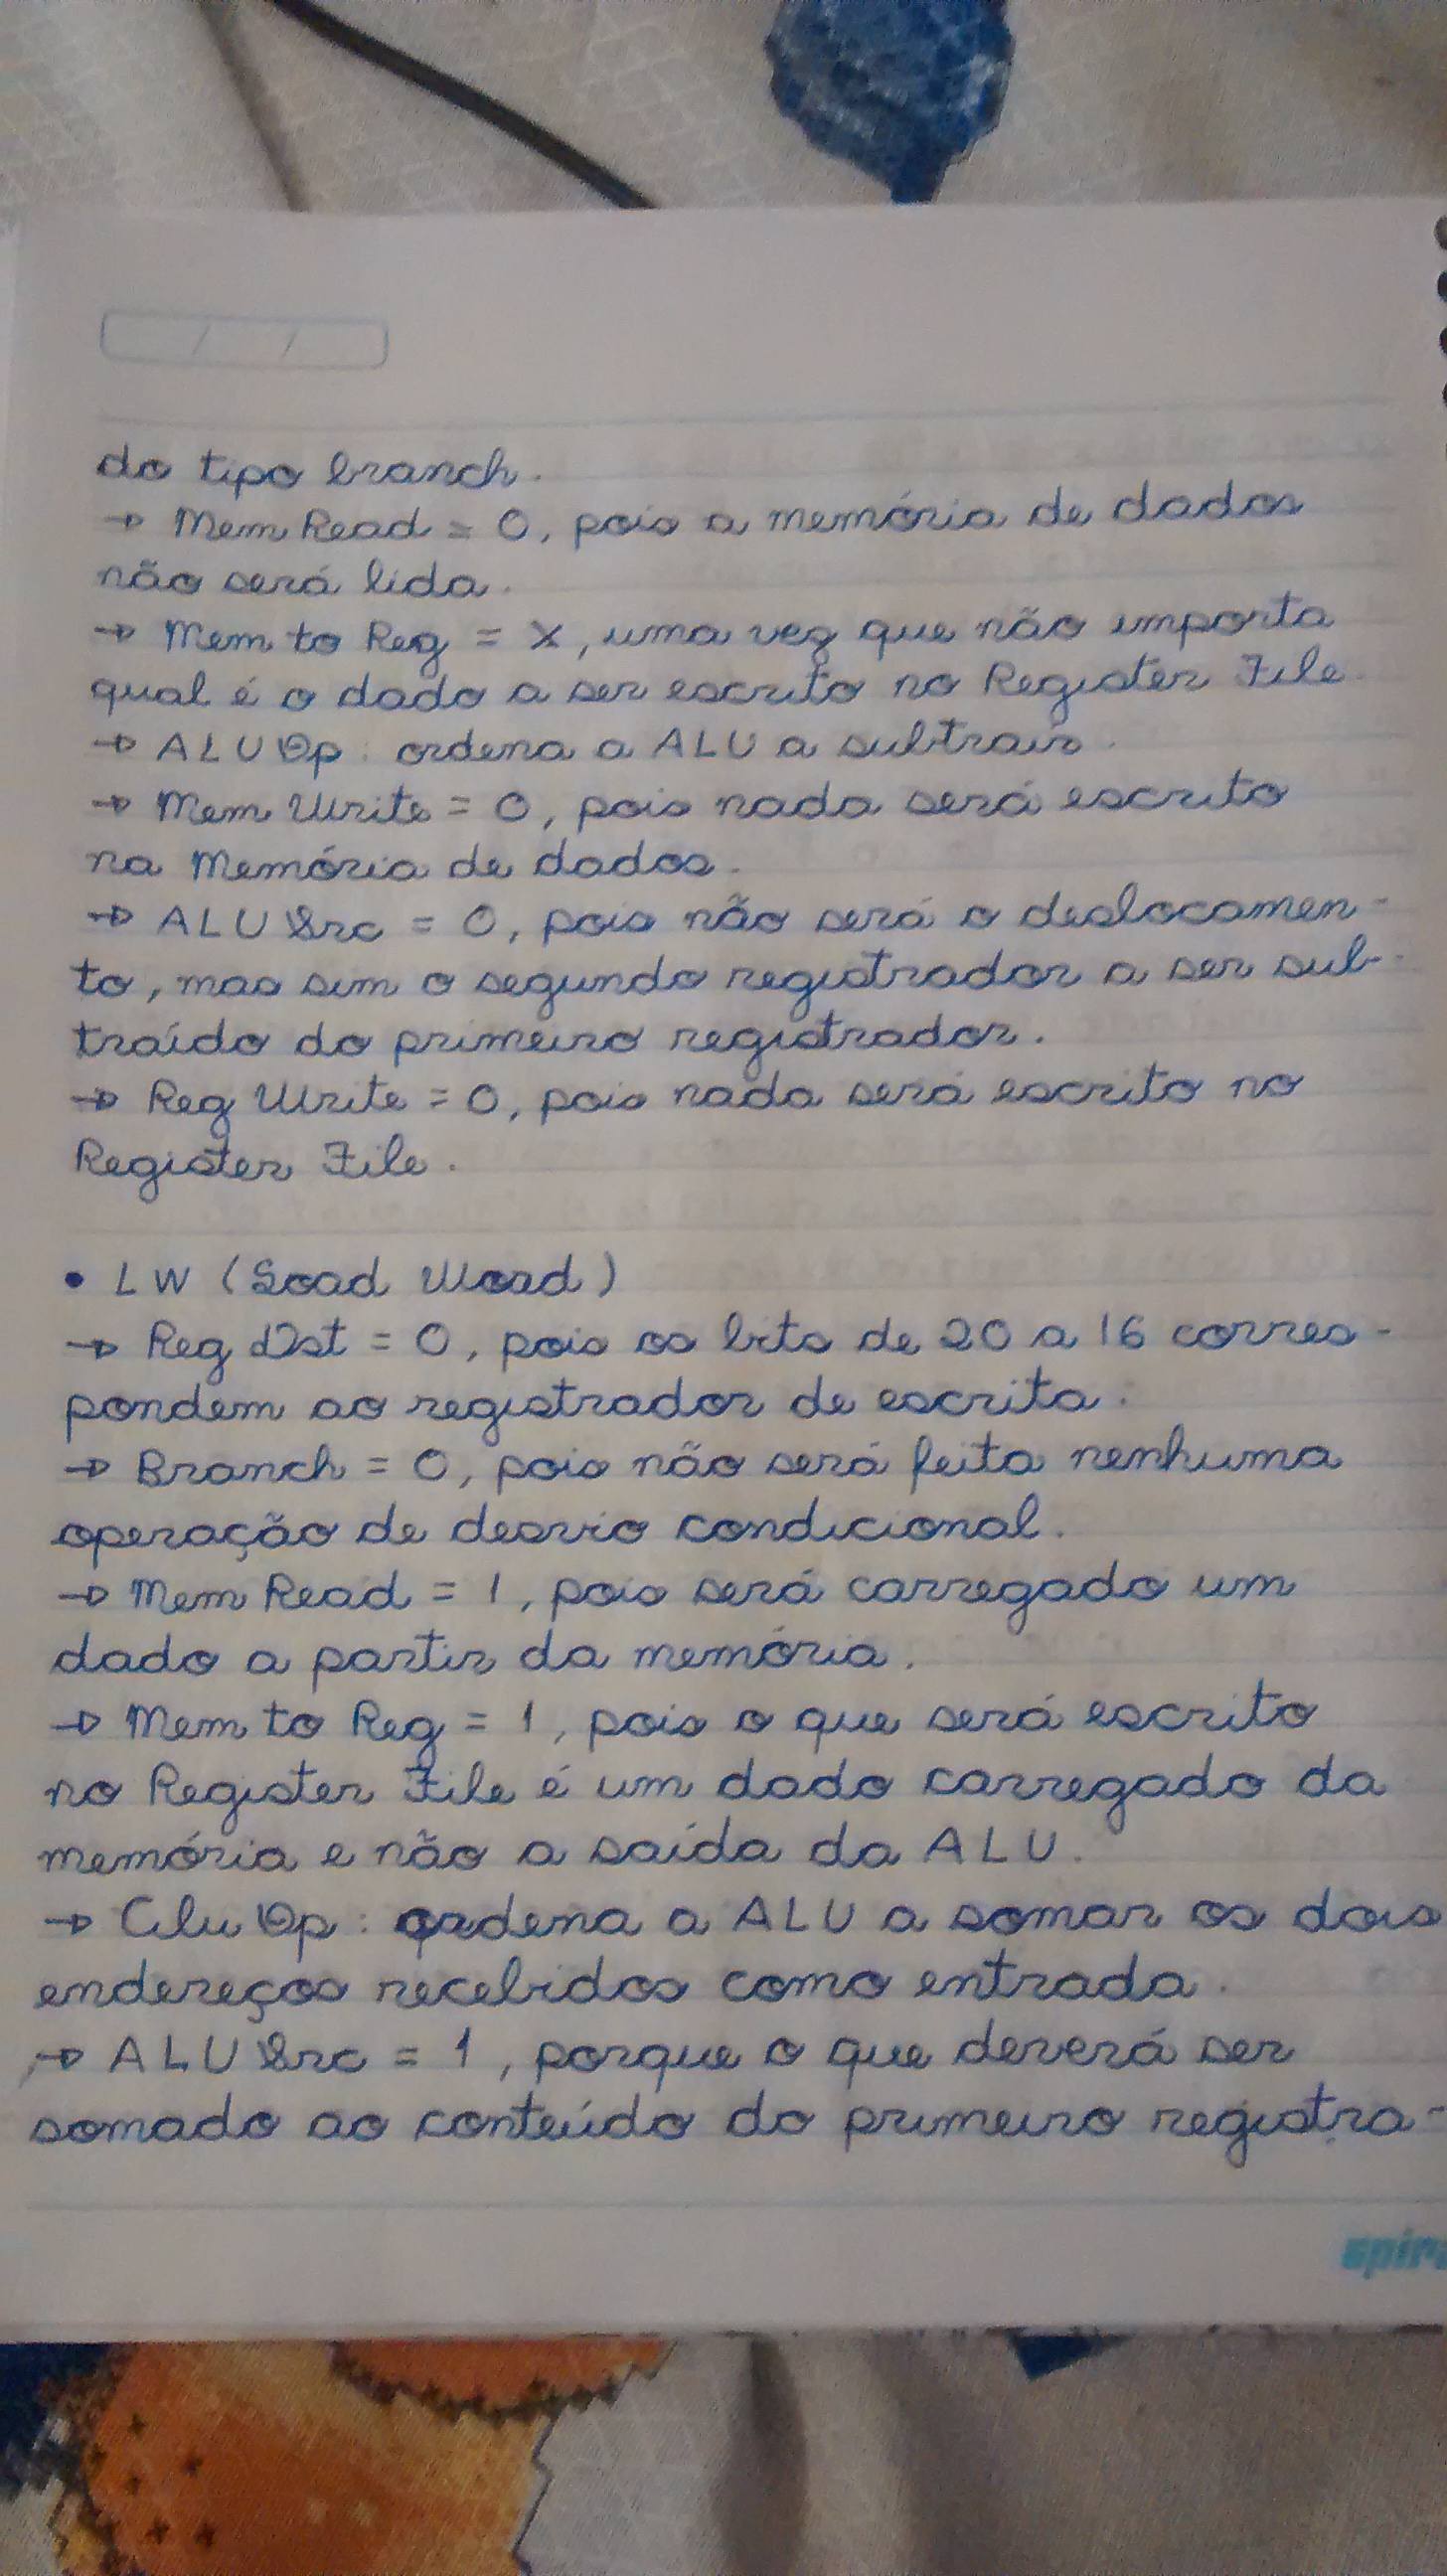 do tipo branch.
→ Mem Read = 0, pois a memória de dados
não será lida.
→ Mem to Reg = X, uma vez que não importa
qual é o dado a ser escrito no Register File.
→ ALU Op: ordena a ALU a subtrair.
→ Mem Write = 0, pois nada será escrito
na Memória de dados.
→ ALU Src = 0, pois não será o deslocamen-
to, mas sim o segundo registrador a ser sub-
traído do primeiro registrador.
→ Reg Write = 0, pois nada será escrito no
Register File.
• LW (Load Word)
→ Reg Dst = 0, pois os bits de 20 a 16 corres-
pondem ao registrador de escrita.
→ Branch = 0, pois não será feita nenhuma
operação de desvio condicional.
→ Mem Read = 1, pois será carregado um
dado a partir da memória.
→ Mem to Reg = 1, pois o que será escrito
no Register File é um dado carregado da
memória e não a saída da ALU.
→ Alu Op: ordena a ALU a somar os dois
endereços recebidos como entrada.
→ ALU Src = 1, porque o que deverá ser
somado ao conteúdo do primeiro registra-